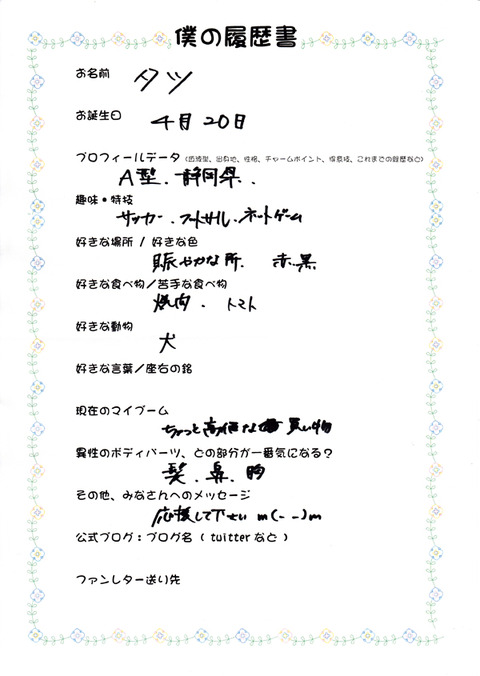 僕の履歴書
お名前
タツ
お誕生日
4月20日
プロフィールデータ(血液型、出身地、性格、チャームポイント、得意技、これまでの履歴など)
A型.静岡県..
趣味・特技
サッカー.フットサル.ネットゲーム
好きな場所 / 好きな色
賑やかな所. 赤.黒
好きな食べ物/苦手な食べ物
焼肉. トマト
好きな動物
犬
好きな言葉/座右の銘
現在のマイブーム
ちょっと高価な買い物
異性のボディパーツ、どの部分が一番気になる?
髪.鼻.胸
その他、みなさんへのメッセージ
応援して下さい m(- -)m
公式ブログ:ブログ名 ( twitterなど )
ファンレター送り先